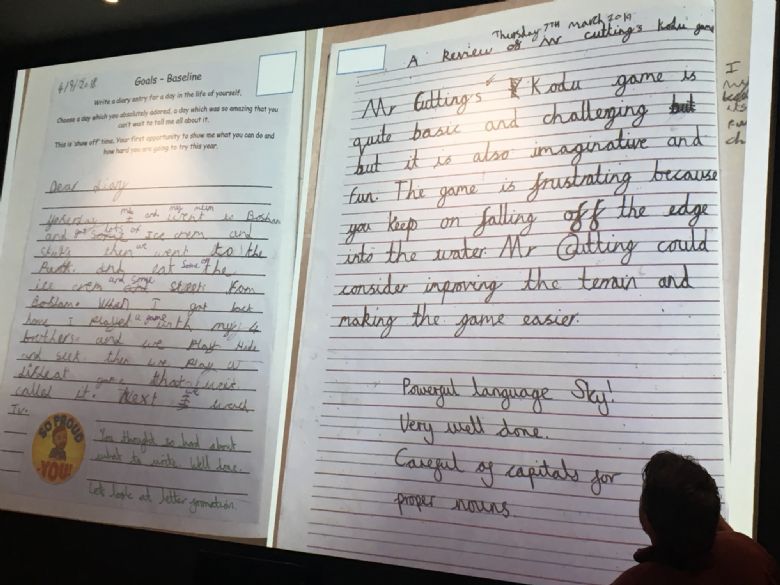 4/9/2018
Goals - Baseline
Write a diary entry for a day in the life of yourself.
Choose a day which you absolutely adored, a day which was so amazing that you
can't wait to tell me all about it.
This is 'show off' time. Your first opportunity to show me what you can do and
how hard you are going to try this year.
Dear diary
Yesterday me I and my mum went to Bosham
and got lots of ice crem and
then we went to the
and eat some of the
ice crem and some street from
Bosham. When I got back
home I played a game with my 4
brothers. and we play Hide
and seek then we play a
game that
called it. Next we
Tv.
SO PROUD
OF YOU!
You thought so hard about
what to write. Well done.
Let's look at letter formation.
Thursday 7TH March 2019
A Review of Mr cutting's Kodu game
Mr Cutting's Kodu game is
quite basic and challenging but
but it is also imaginative and
fun. The game is frustrating because
you keep on falling off the edge
into the water. Mr Cutting could
consider inproving the terrain and
making the game easier.
Powerful language Sky!
Very well done.
Careful of capitals for
proper nouns
I
my
its
ch